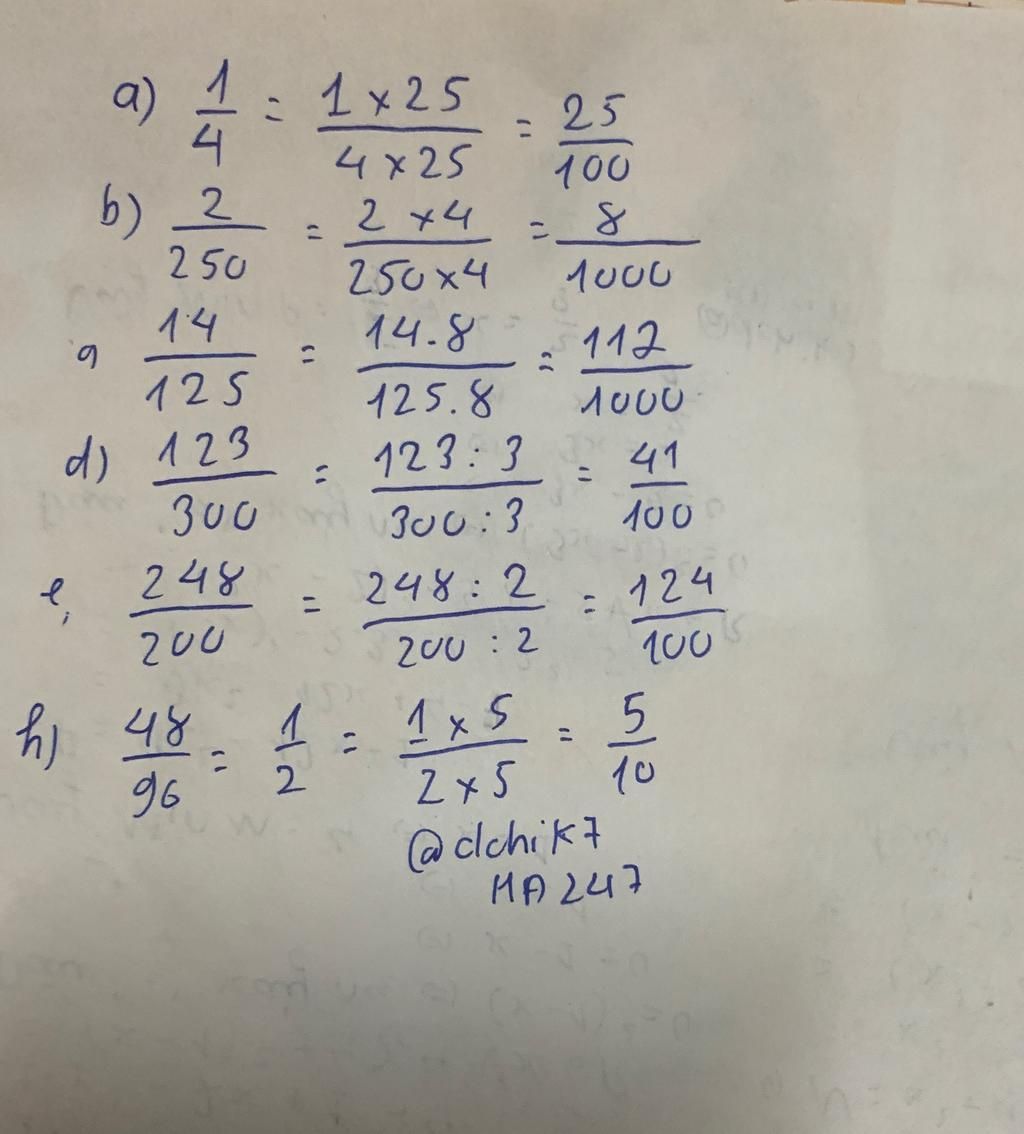 a) 1/4 = 1 x 25 / 4 x 25 = 25/100
b) 2/250 = 2 x 4 / 250 x 4 = 8/1000
9 14/125 = 14.8 / 125.8 = 112/1000
d) 123/300 = 123 : 3 / 300 : 3 = 41/100
e, 248/200 = 248 : 2 / 200 : 2 = 124/100
h) 48/96 = 1/2 = 1 x 5 / 2 x 5 = 5/10
@clchik7
MA247